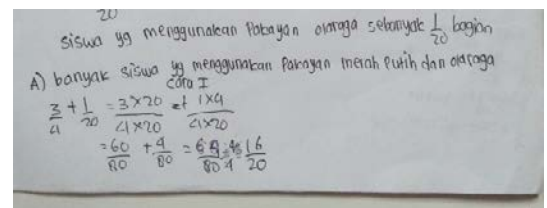 20
siswa yg menggunakan Pakayan olaraga sebanyak 1/20 bagian
A) banyak siswa yg menggunakan Pakayan merah Putih dan olaraga
cara I
3/4 + 1/20 = 3×20/4×20 + 1×4/4×20
= 60/80 + 4/80 = 64/80 : 4/4 = 16/20